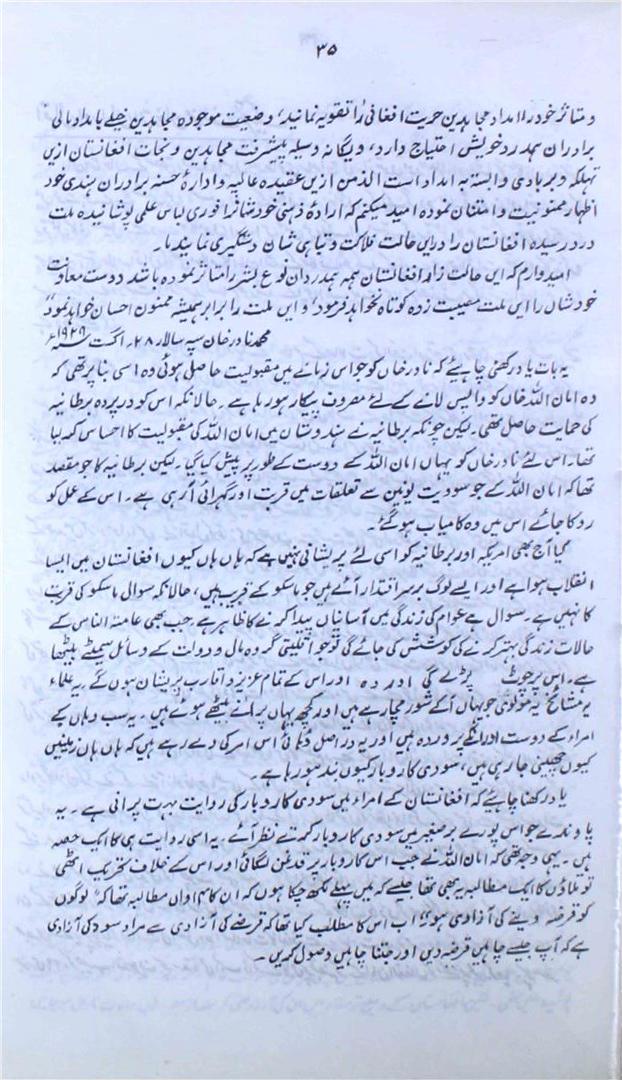 ۳۵
و متاثر خود را امداد مجاہدین حریت افغانی را تقویہ نمائید، وضعیت موجودہ مجاہدین خیلے بامداد مالی
برادران ہمدرد خویش احتیاج دارد، ویگانہ وسیلہ پیشرفت مجاہدین و نجات افغانستان ازیں
تہلکہ و بربادی وابستہ بہ امداد است الذمن ازیں عقیدہ عالیہ و ادارۂ حسنہ برادران ہندی خود
اظہار ممنونیت و امتنان نمودہ امید میکنم کہ ارادۂ ذہنی خود شانرا فوری لباس عملی پوشانیدہ ملت
درد رسیدہ افغانستان را دریں حالت فلاکت و تباہی شان دستگیری نمایند ما۔
امیدوارم کہ ایں حالت زار افغانستان ہمہ ہمدردان نوع بشر را متاثر نمودہ باشد دوست معاونت
خود شاں را ایں ملت مصیبت زدہ کوتاہ نخواہد فرمود، و ایں ملت را برابر ہمیشہ ممنون احسان خواہد نمود‘‘
محمد نادر خان سپہ سالار ۲۸۔ اگست ۱۹۲۹ء
یہ بات یاد رکھنی چاہیئے کہ نادر خاں کو جو اس زمانے میں مقبولیت حاصل ہوئی وہ اسی بنا پر تھی کہ
وہ امان اللہ خاں کو واپس لانے کے لئے مصروف پیکار ہو رہا ہے۔ حالانکہ اس کو درپردہ برطانیہ
کی حمایت حاصل تھی۔ لیکن چونکہ برطانیہ نے ہندوستان میں امان اللہ کی مقبولیت کا احساس کر لیا
تھا۔ اس لئے نادر خاں کو یہاں امان اللہ کے دوست کے طور پر پیش کیا گیا۔ لیکن برطانیہ کا جو مقصد
تھا کہ امان اللہ کے جو سوویت یونین سے تعلقات میں قربت اور گہرائی آ رہی ہے۔ اس کے عمل کو
روکا جائے اس میں وہ کامیاب ہو گئے۔
گیا آج بھی امریکہ اور برطانیہ کو اسی لئے پریشانی نہیں ہے کہ ہاں ہاں کیوں افغانستان میں ایسا
انقلاب ہوا ہے اور ایسے لوگ برسر اقتدار آئے ہیں جو ماسکو کے قریب ہیں، حالانکہ سوال ماسکو کی قربت
کا نہیں ہے۔ سوال ہے عوام کی زندگی میں آسانیاں پیدا کرنے کا ظاہر ہے جب بھی عامتہ الناس کے
حالات زندگی بہتر کرنے کی کوشش کی جائے گی تو جو اقلیتی گروہ مال و دولت کے وسائل سمیٹے بیٹھا
ہے۔ اس پر چوٹ پڑے گی اور وہ اور اس کے تمام عزیز و اقارب پریشان ہوں گے۔ یہ علماء
یہ مشائخ یہ مولوی جو یہاں آکے شور مچا رہے ہیں اور کچھ یہاں پرانے بیٹھے ہوئے ہیں۔ یہ سب وہاں کے
امراء کے دوست اور انکے پروردہ ہیں اور یہ دراصل دہائی اس امر کی دے رہے ہیں کہ ہاں ہاں زمینیں
کیوں چھینی جا رہی ہیں، سودی کاروبار کیوں بند ہو رہا ہے۔
یاد رکھنا چاہیئے کہ افغانستان کے امراء میں سودی کاروبار کی روایت بہت پرانی ہے۔ یہ
پاوندے جو اس پورے برصغیر میں سودی کاروبار کرتے نظر آتے۔ یہ اسی روایت ہی کا ایک حصہ
ہیں۔ یہی وجہ تھی کہ امان اللہ نے جب اس کاروبار پر قدغن لگائی اور اس کے خلاف تحریک اٹھی
تو ملاؤں کا ایک مطالبہ یہ بھی تھا جیسے کہ میں پہلے لکھ چکا ہوں کہ ان کا مطالبہ تھا کہ ’’لوگوں
کو قرضہ دینے کی آزادی ہو‘‘ اب اس کا مطلب کیا تھا کہ قرضے کی آزادی سے مراد سود کی آزادی
ہے کہ آپ جیسے چاہیں قرضہ دیں اور جتنا چاہیں وصول کریں۔